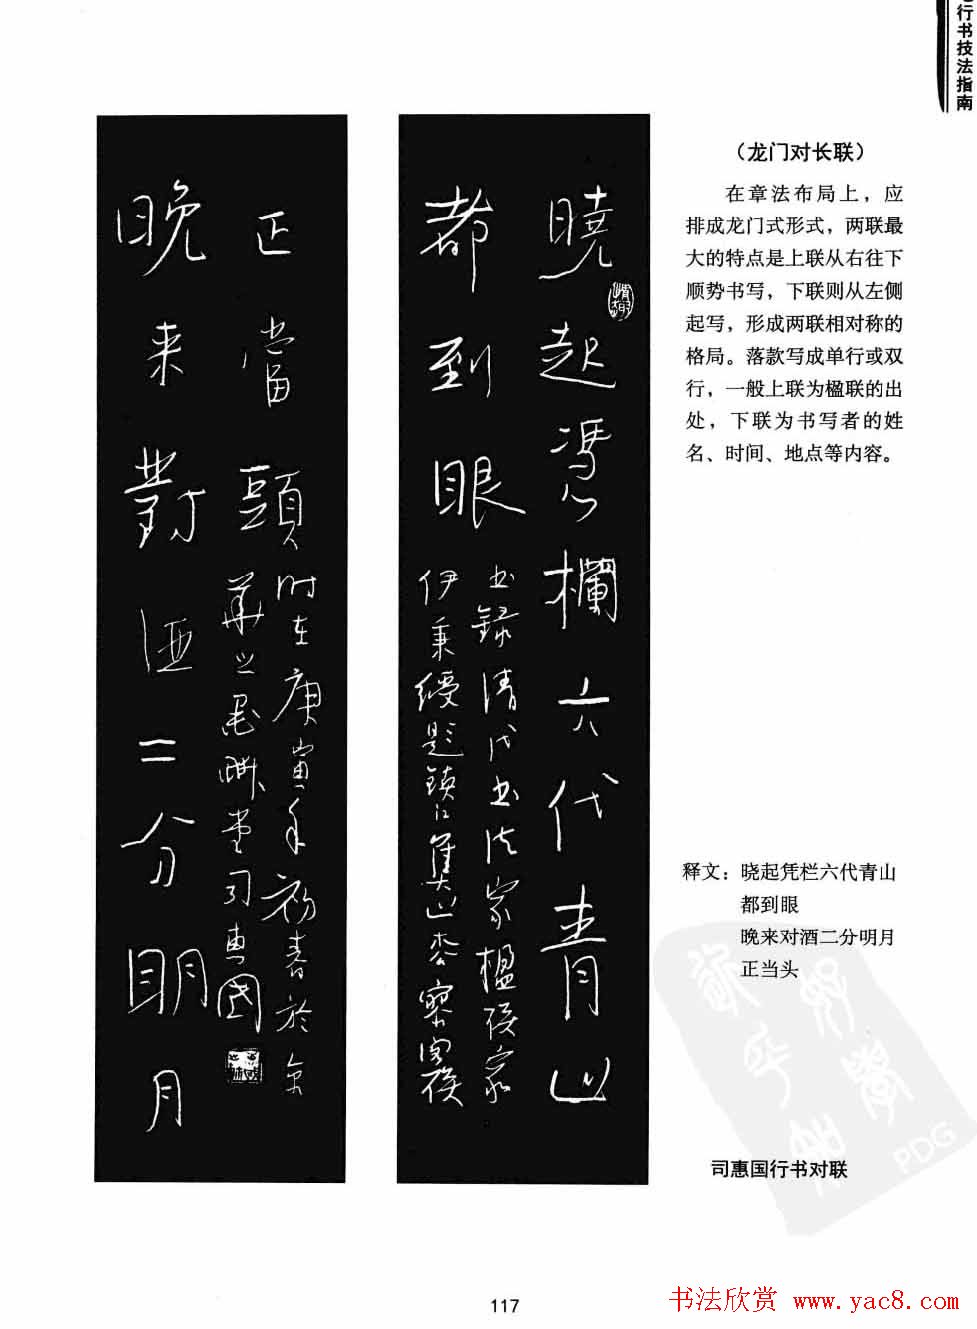 行书技法指南
（龙门对长联）
在章法布局上，应
排成龙门式形式，两联最
大的特点是上联从右往下
顺势书写，下联则从左侧
起写，形成两联相对称的
格局。落款写成单行或双
行，一般上联为楹联的出
处，下联为书写者的姓
名、时间、地点等内容。
曉起馮心欄六代青山
都到眼
书録清代书法家楹联家
伊秉绶题镇江焦山
晚来對酒二分明月
正當頭
时在庚寅年初春於京
華之墨联堂司惠國
释文：晓起凭栏六代青山
都到眼
晚来对酒二分明月
正当头
司惠国行书对联
PDG
117
书法欣赏 www.yac8.com